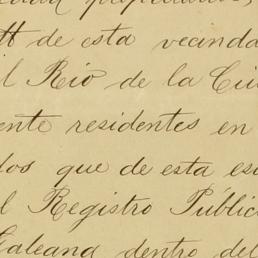 de esta vecinda
l Rio de la Ciu
ente residentes en
dos que de esta es
l Registro Públic
Galeana dentro del